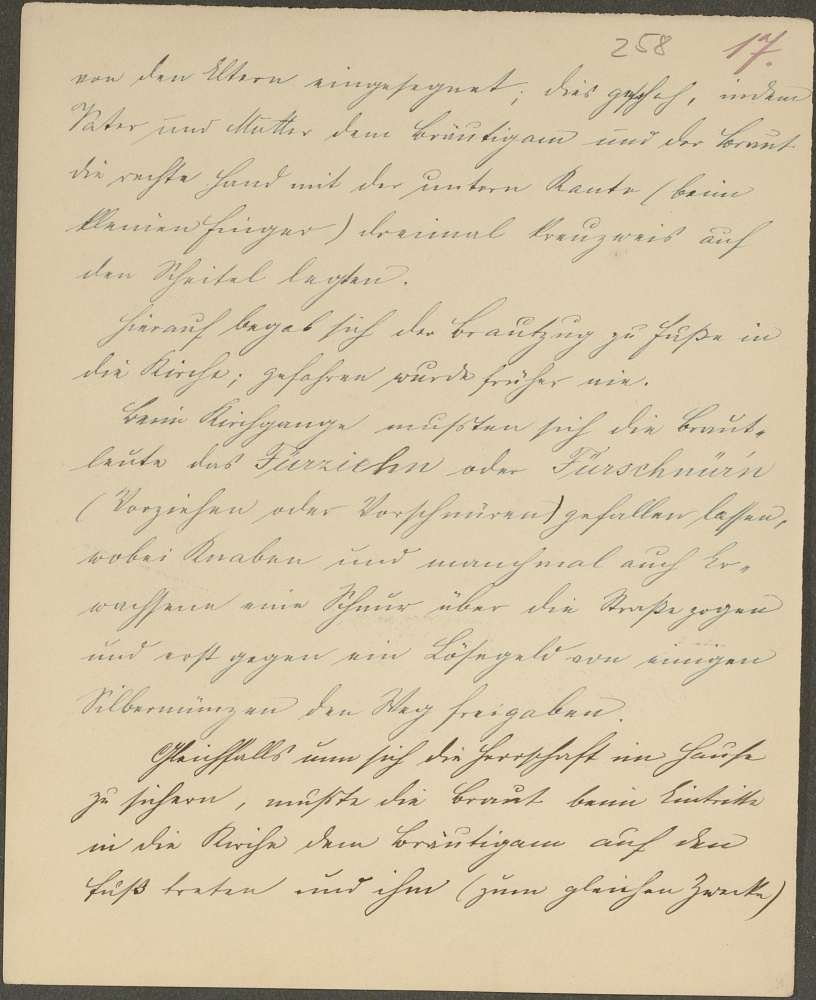 258 17.
von den Eltern eingesegnet; dies geschah, indem
Vater und Mutter dem Bräutigam und der Braut
die rechte Hand mit der untern Kante (beim
kleinen Finger) dreimal kreuzweis auf
den Scheitel legten.
Hierauf begab sich der Brautzug zu Fuße in
die Kirche; gefahren wurde früher nie.
Beim Kirchgange mußten sich die Braut-
leute das Fürziehn oder Fürschnürn
(Vorziehen oder Vorschnüren) gefallen lassen,
wobei Knaben und manchmal auch Er-
wachsene eine Schnur über die Straße zogen
und erst gegen ein Lösegeld von einigen
Silbermünzen den Weg freigaben.
Gleichfalls um sich die Herrschaft im Hause
zu sichern, mußte die Braut beim Eintritte
in die Kirche dem Bräutigam auf den
Fuß treten und ihm (zum gleichen Zwecke)